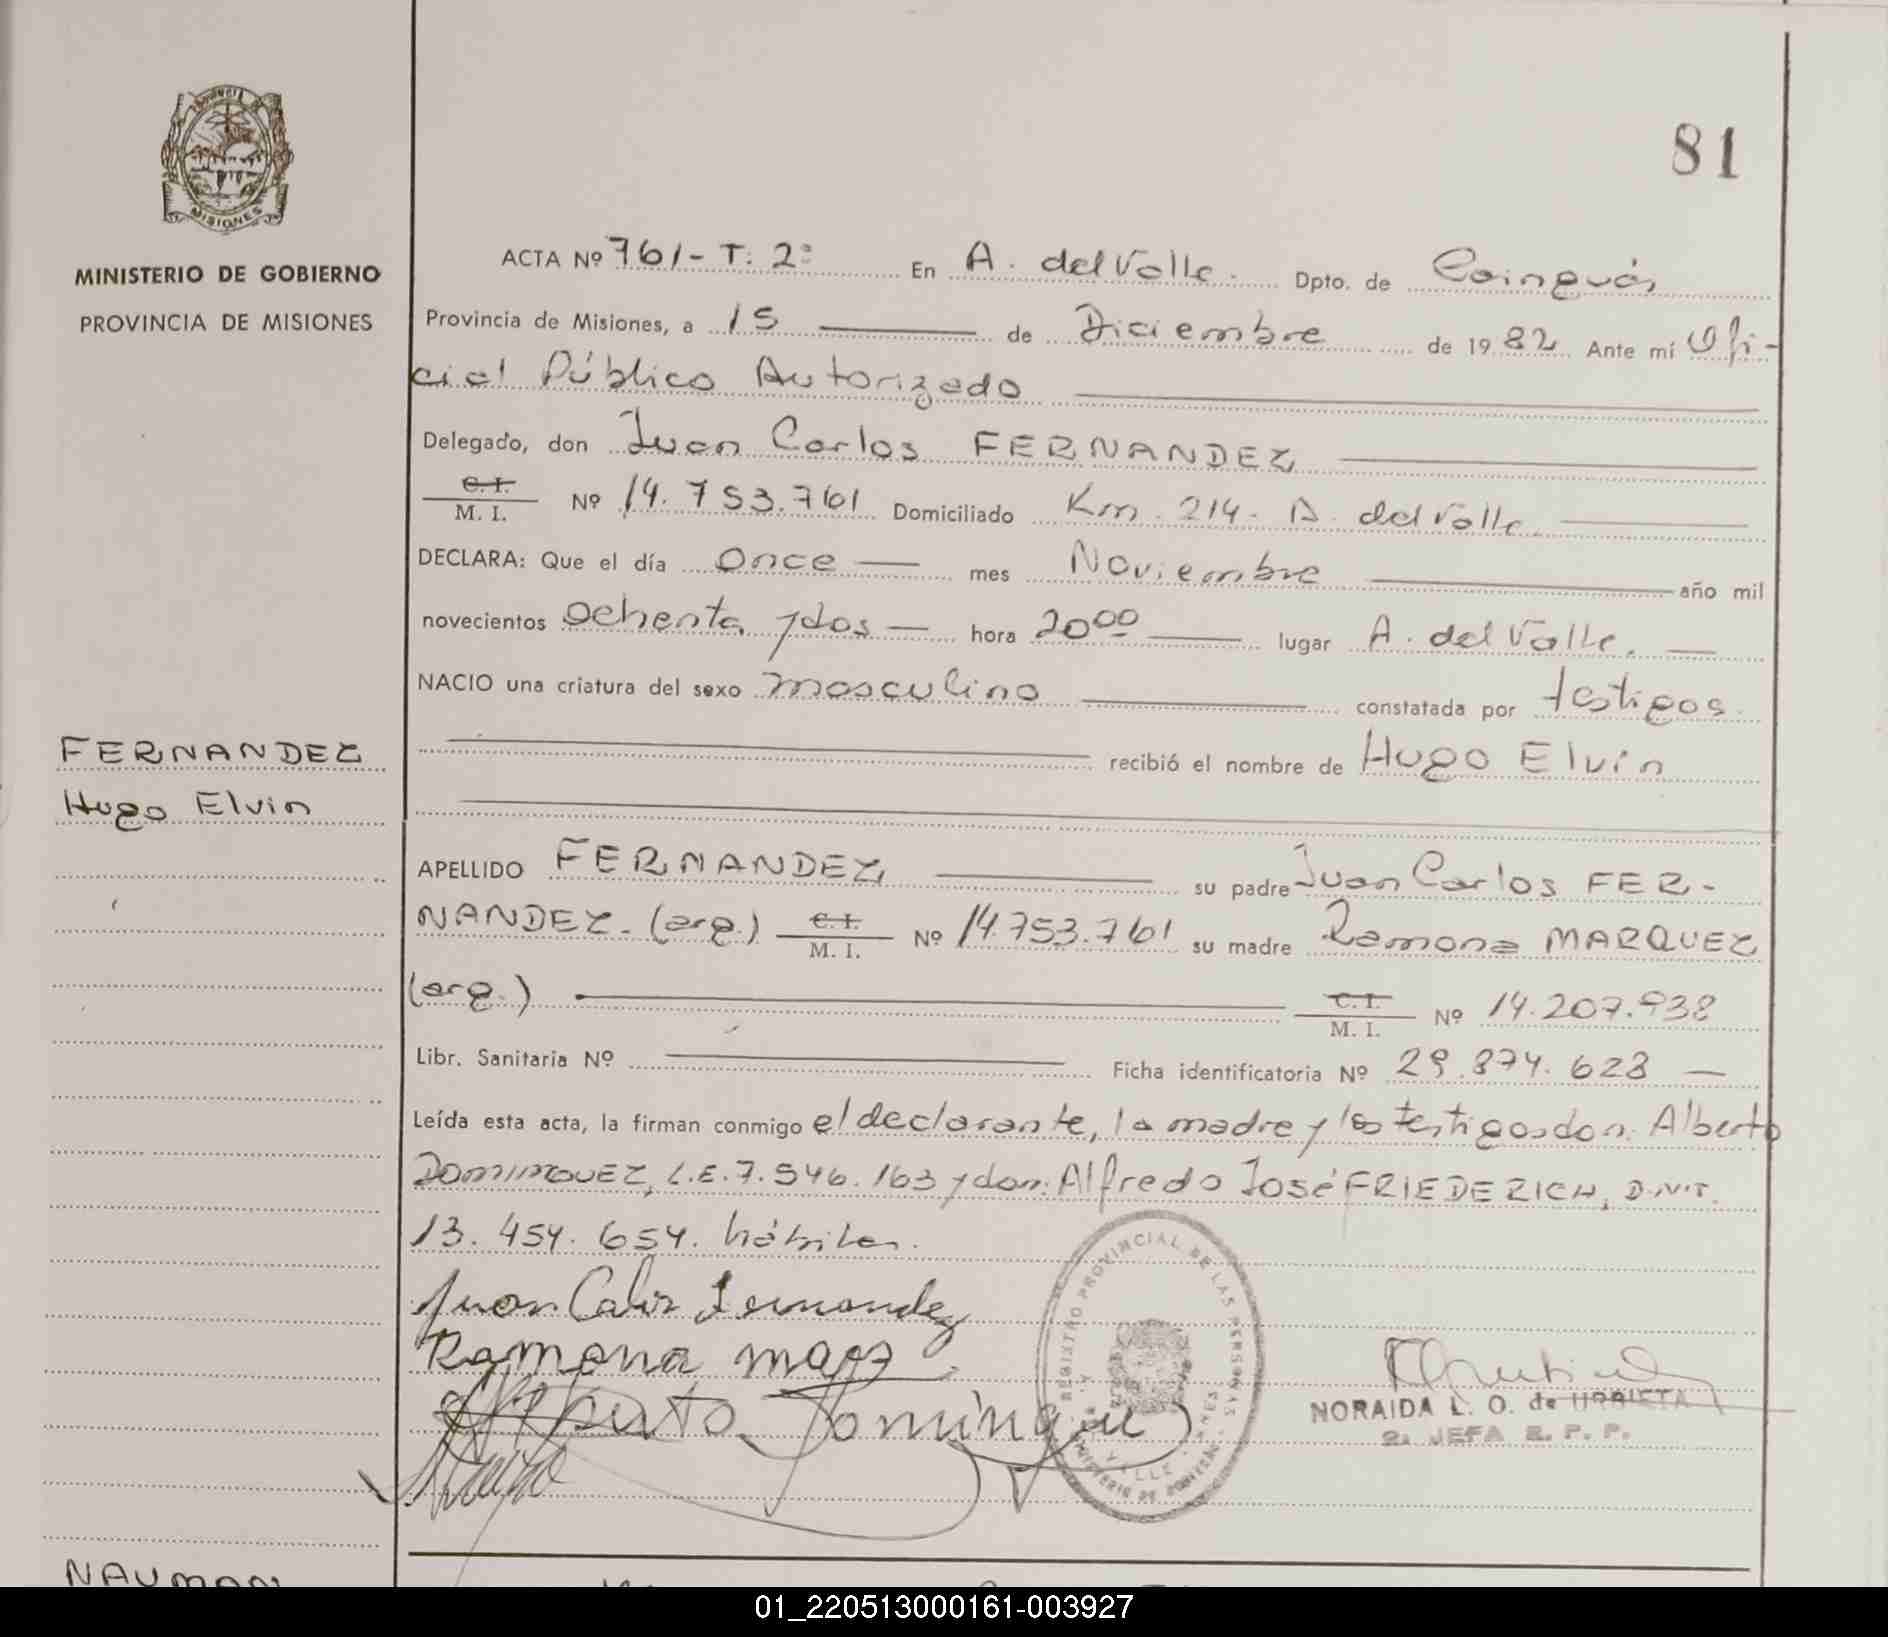 81
MINISTERIO DE GOBIERNO
PROVINCIA DE MISIONES
ACTA Nº 761-T. 2º En A. del Valle. Dpto. de Cainguás
Provincia de Misiones, a 15 de Diciembre de 1982 Ante mí Ofi-
cial Público Autorizado
Delegado, don Juan Carlos FERNANDEZ
C. I.
M. I. Nº 14.753.761 Domiciliado Km. 214. A. del Valle.
DECLARA: Que el día Once mes Noviembre año mil
novecientos Ochenta y dos hora 20 00 lugar A. del Valle.
NACIO una criatura del sexo masculino constatada por testigos.
recibió el nombre de Hugo Elvin
FERNANDEZ
Hugo Elvin
APELLIDO FERNANDEZ su padre Juan Carlos FER-
NANDEZ. (arg.) C. I. M. I. Nº 14.753.761 su madre Ramona MARQUEZ
(arg.) C. I. M. I. Nº 14.207.938
Libr. Sanitaria Nº Ficha identificatoria Nº 29.874.628
Leída esta acta, la firman conmigo el declarante, la madre y los testigos don. Alberto
DOMINGUEZ, L.E. 7.546.163 y don. Alfredo José FRIEDERICH, D.N.I.
13.454.654. hábiles.
Juan Carlos Fernandez
Ramona
Alberto Domingue
REGISTRO PROVINCIAL DE LAS PERSONAS
VALLE
MISIONES
MINISTERIO DE GOBIERNO
NORAIDA L. O. de URRIETA
2a. JEFA R. P. P.
NAUMAN
01_220513000161-003927